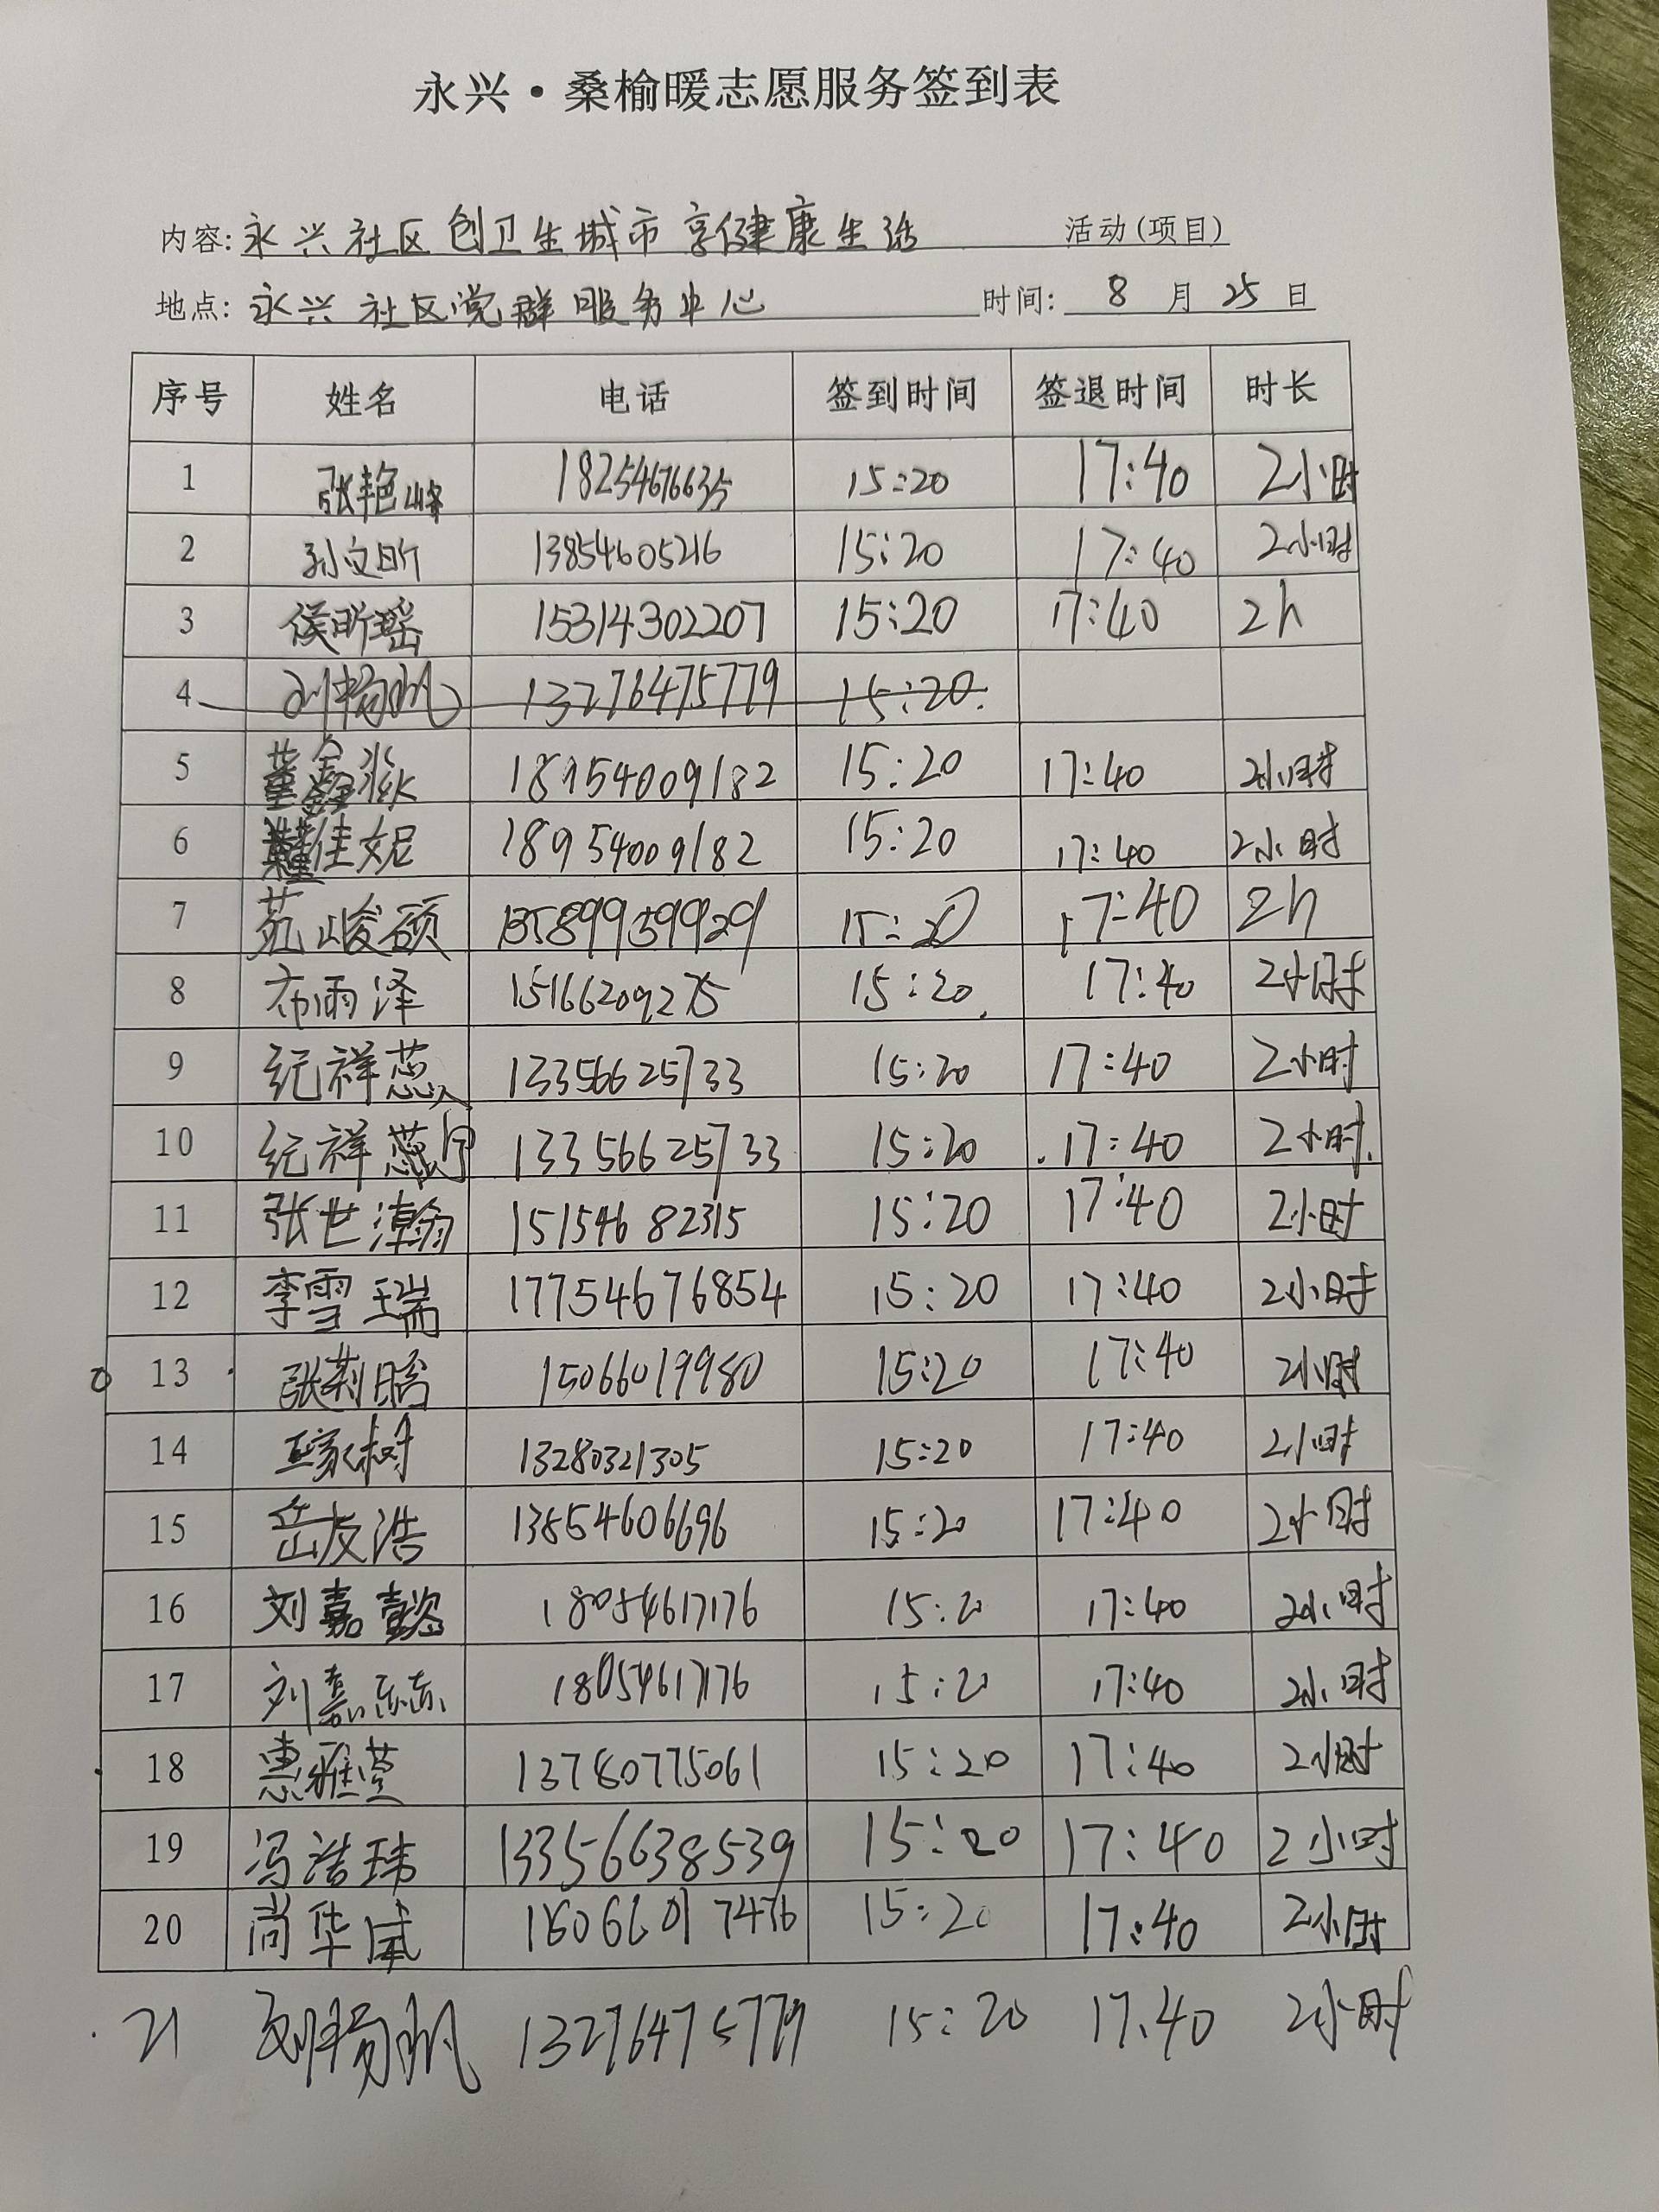 永兴·桑榆暖志愿服务签到表
内容: 永兴社区创卫生城市享健康生活 活动(项目)
地点: 永兴社区党群服务中心 时间: 8 月 25 日
序号 姓名 电话 签到时间 签退时间 时长
1 张艳峰 18254676635 15:20 17:40 2小时
2 孙文昕 13854605216 15:20 17:40 2小时
3 侯昕瑶 15314302207 15:20 17:40 2h
4 刘杨帆 13276475779 15:20.
5 董鑫淼 18954009182 15:20 17:40 2小时
6 董佳妮 18954009182 15:20 17:40 2小时
7 苑峻硕 13589959929 15:20 17:40 2h
8 布雨泽 15166209275 15:20. 17:40 2小时
9 纪祥蕊 13356625733 15:20 17:40 2小时
10 纪祥 13356625733 15:20 17:40 2小时.
11 张世瀚 15154682315 15:20 17:40 2小时
12 李雪瑞 17754676854 15:20 17:40 2小时
13 张荆 15066019980 15:20 17:40 2小时
14 王家树 13280321305 15:20 17:40 2小时
15 岳友浩 13854606696 15:20 17:40 2小时
16 刘嘉懿 18054617176 15:20 17:40 2小时
17 刘嘉 18054617176 15:20 17:40 2小时
18 惠雅萱 13780775061 15:20 17:40 2小时
19 冯浩玮 13356638539 15:20 17:40 2小时
20 尚华威 15:20 17:40 2小时
21 刘杨帆 13276475779 15:20 17:40 2小时